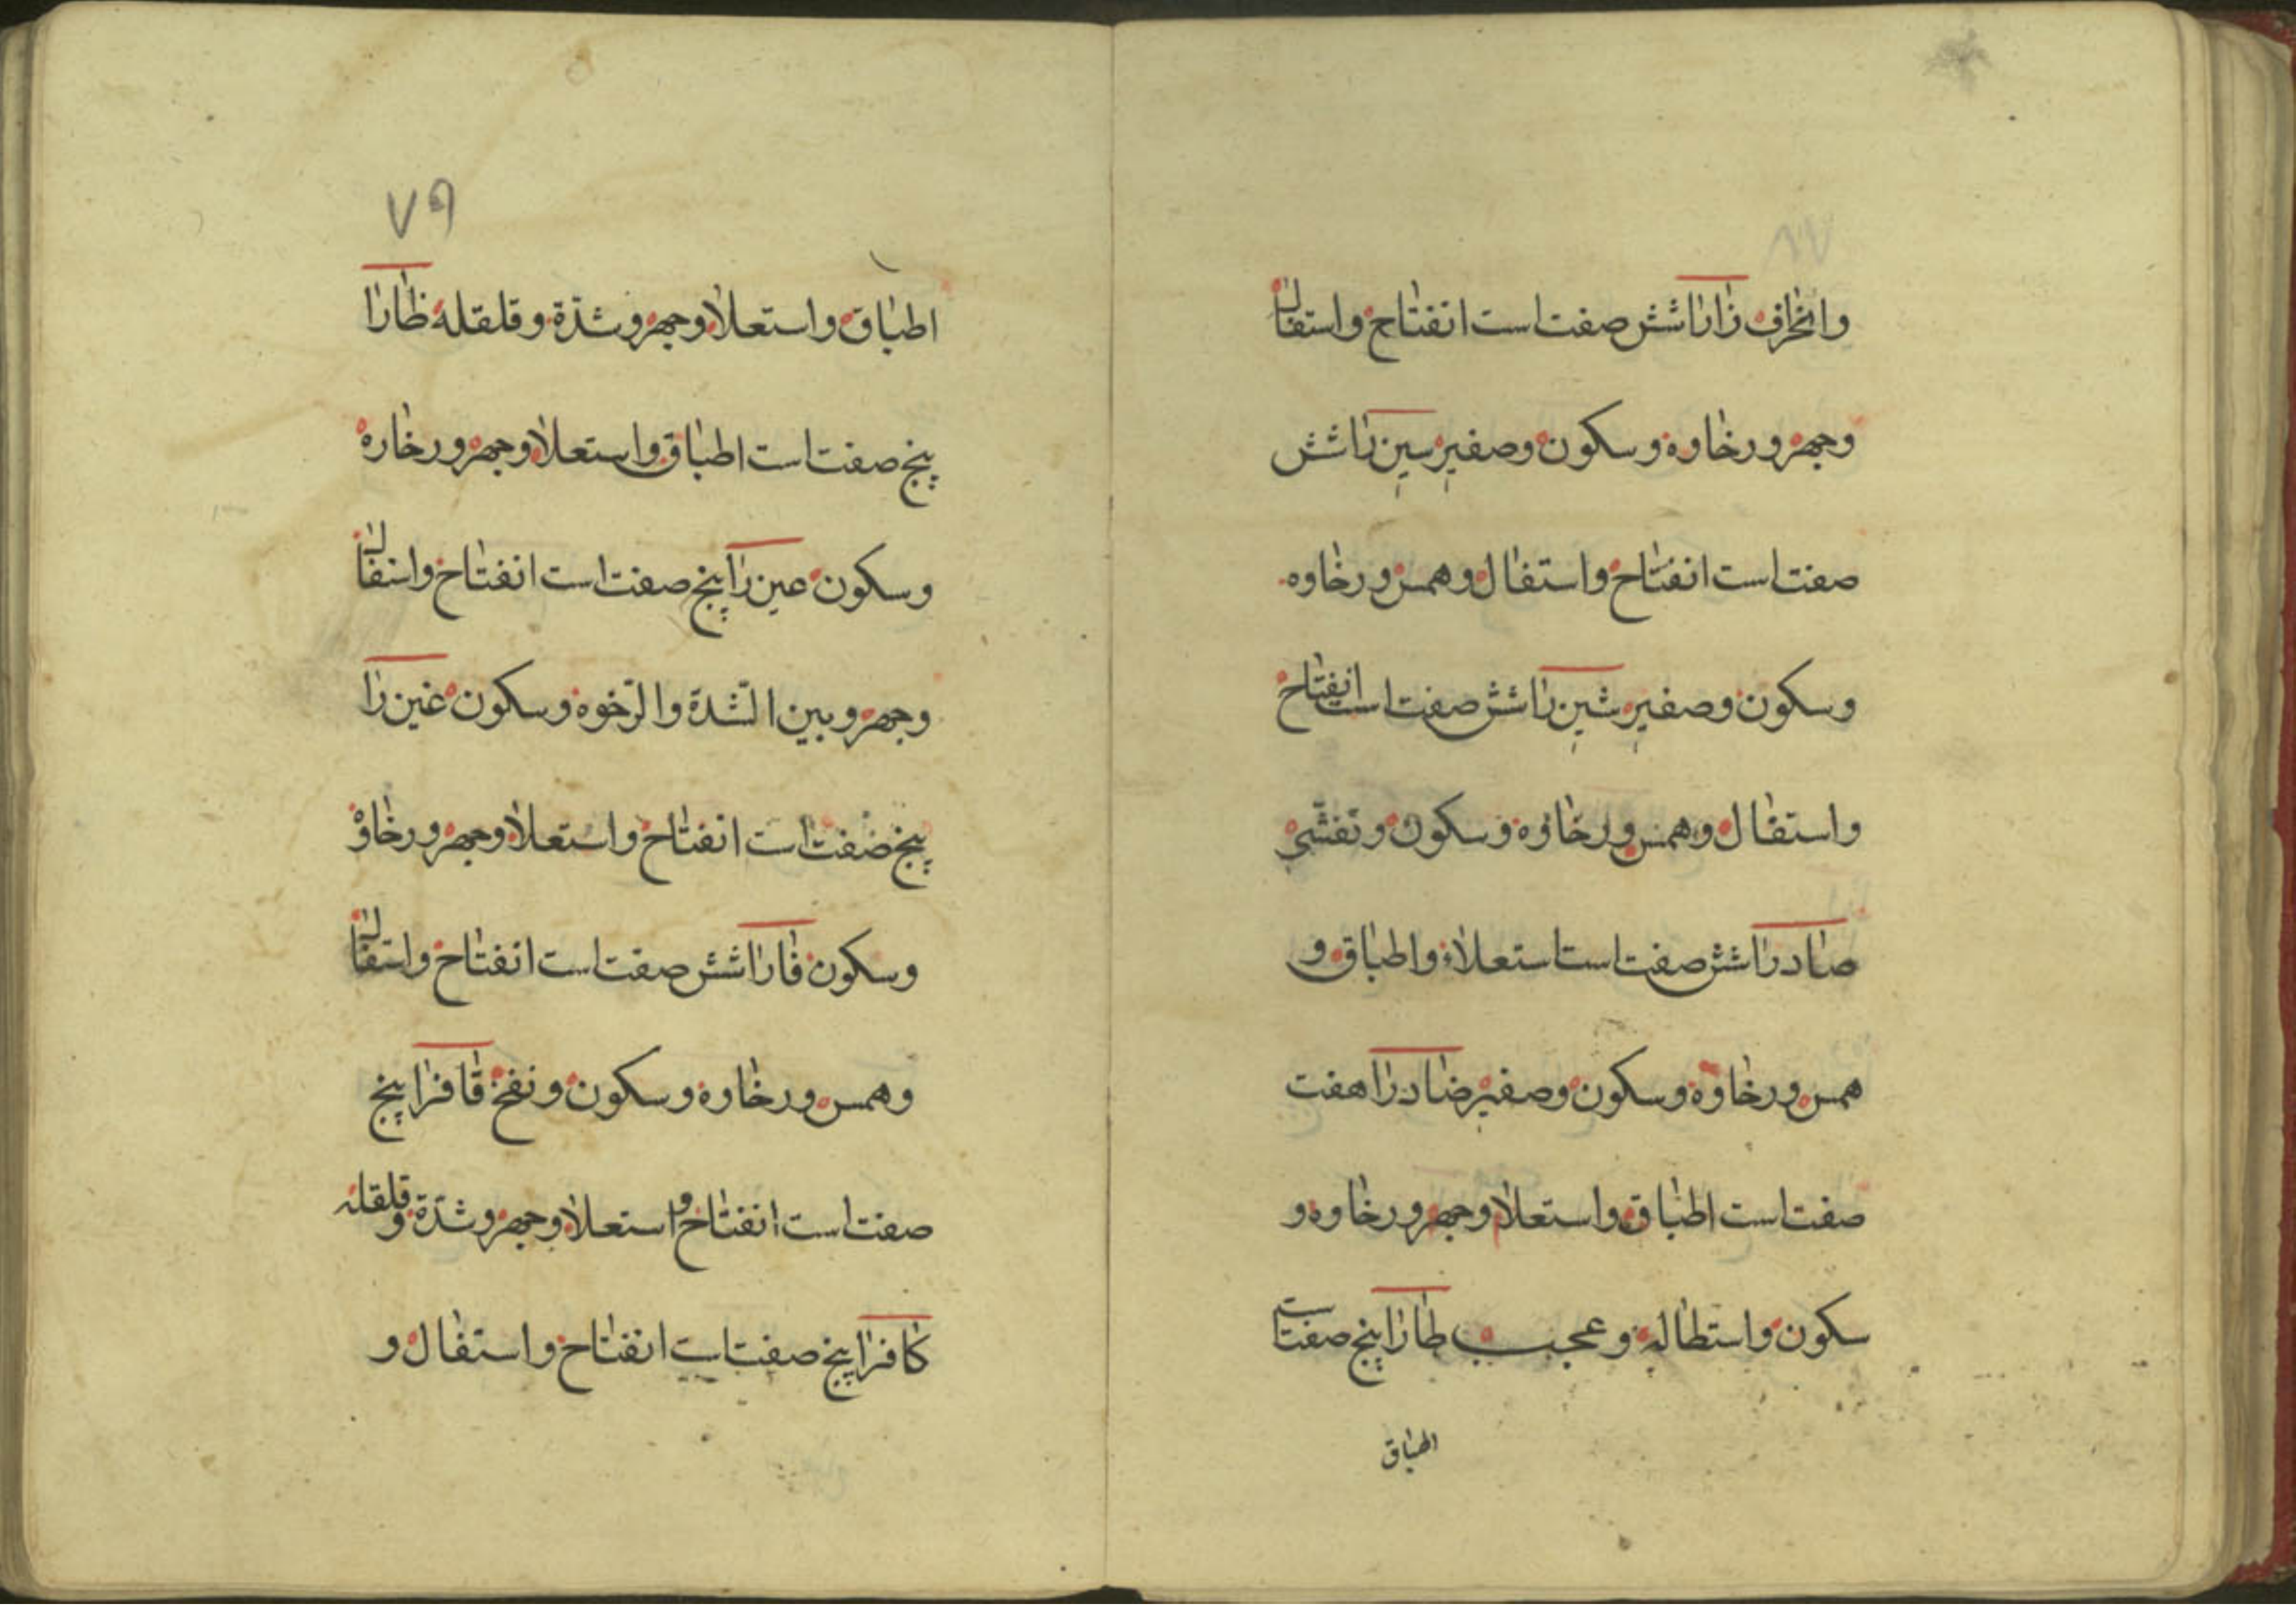 وانحراف زا را شش صفت است انفتاح واستفال
وجهر ورخاوه وسکون وصفیر سین را شش
صفت است انفتاح واستفال وهمس ورخاوه
وسکون وصفیر شین را شش صفت است انفتاح
واستفال وهمس ورخاوه وسکون وتفشی
صاد را شش صفت است استعلاء واطباق و
همس ورخاوه وسکون وصفیر ضاد را هفت
صفت است اطباق واستعلا وجهر ورخاوه و
سکون واستطاله و عجیب طا را پنج صفت است
اطباق
٧٩
اطباق واستعلا وجهر وشدّة وقلقله ظا را
پنج صفت است اطباق واستعلا وجهر ورخاره
وسکون عین را پنج صفت است انفتاح واستفال
وجهر وبین الشّدة والرّخوه وسکون غین را
پنج صفت است انفتاح واستعلا وجهر ورخاوة
وسکون فا را شش صفت است انفتاح واستفال
وهمس ورخاوه وسکون ونفخ قاف را پنج
صفت است انفتاح و استعلا وجهر وشدّة وقلقله
کاف را پنج صفت است انفتاح واستفال و